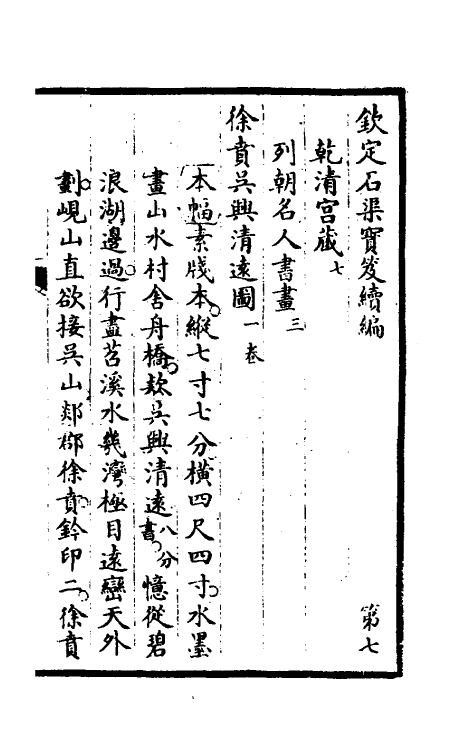 欽定石渠寶笈續編 第七
乾清宮藏 七
列朝名人書畫 三
徐賁吳興清遠圖 一卷
本幅素牋本縱七寸七分橫四尺四寸水墨
畫山水村舍舟橋欵吳興清遠 八分書 憶從碧
浪湖邊過行盡苕溪水幾灣極目遠巒天外
劃峴山直欲接吳山郯郡徐賁鈐印二徐賁